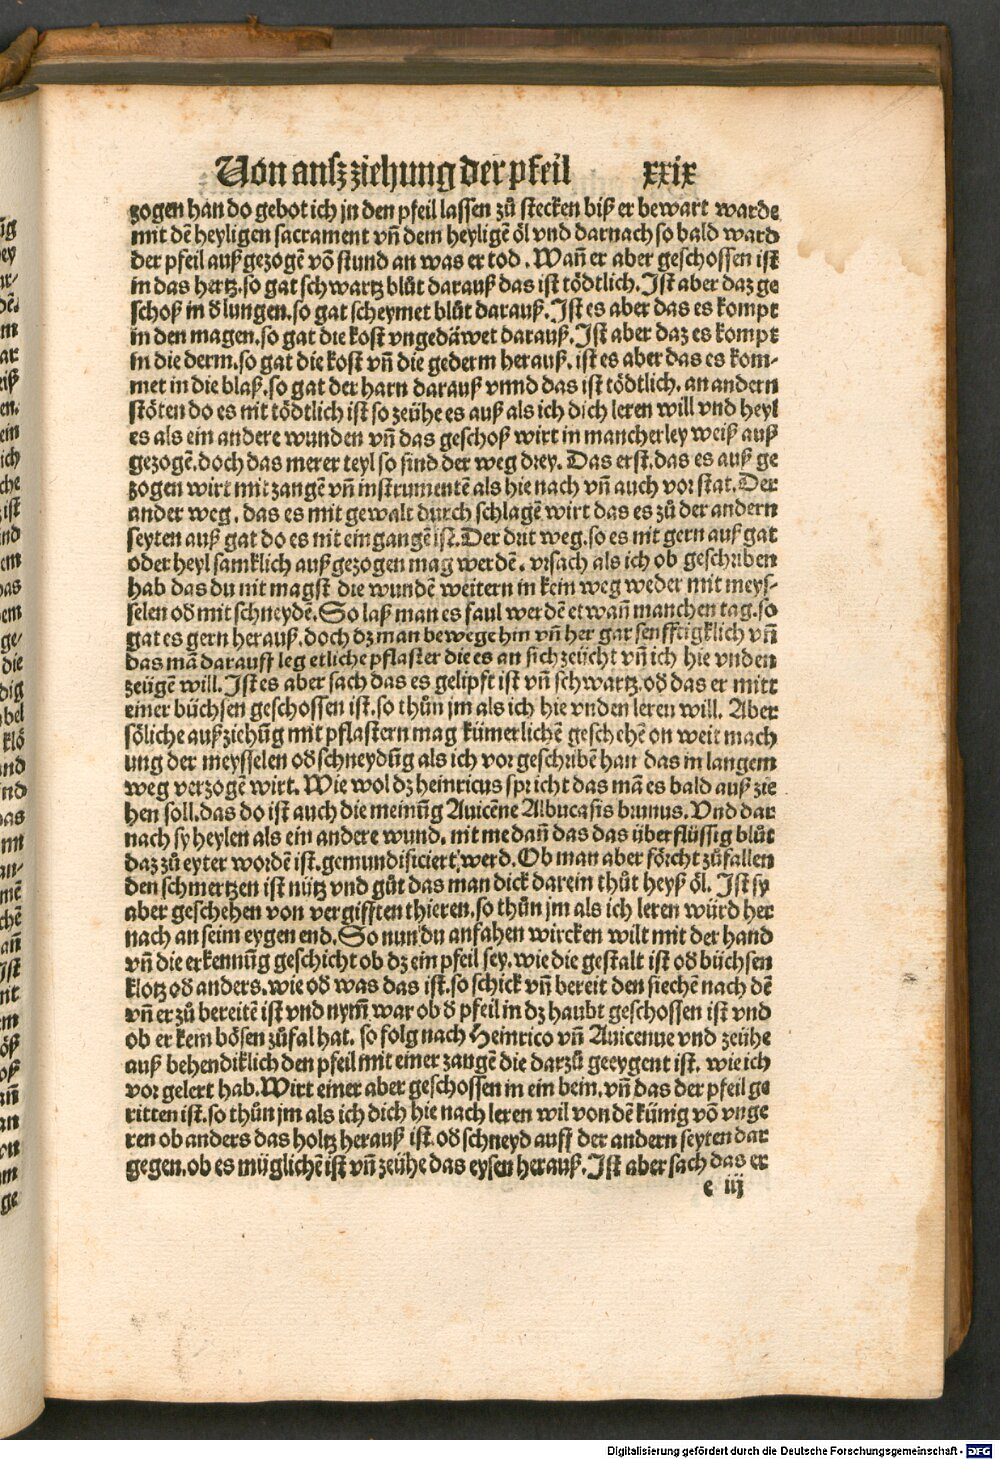 Von auſzziehung der pfeil xxix
zogen han do gebot ich jn den pfeil laſſen zů ſtecken biß er bewart warde
mit dē heyligen ſacrament vñ dem heyligē öl vnd darnach ſo bald ward
der pfeil auß gezogē vō ſtund an was er tod. Wañ er aber geſchoſſen iſt
in das hertz. ſo gat ſchwartz blůt darauß das iſt tödtlich. Iſt aber daz ge
ſchoß in ď lungen. ſo gat ſcheymet blůt darauß. Iſt es aber das es kompt
in den magen. ſo gat die koſt vngedäwet darauß. Iſt aber daz es kompt
in die derm. ſo gat die koſt vñ die gederm herauß. iſt es aber das es kom-
met in die blaß. ſo gat der harn darauß vnnd das iſt tödtlich. an andern
ſtöten do es nit tödtlich iſt ſo zeühe es auß als ich dich leren will vnd heyl
es als ein andere wunden vñ das geſchoß wirt in mancherley weiß auß
gezogē. doch das merer teyl ſo ſind der weg drey. Das erſt. das es auß ge
zogen wirt mit zangē vñ inſtrumentē als hie nach vñ auch vor ſtat. Der
ander weg. das es mit gewalt durch ſchlagē wirt das es zů der andern
ſeyten auß gat do es nit eingangē iſt. Der drit weg. ſo es nit gern auß gat
oder heyl ſamklich auß gezogen mag werdē. vrſach als ich ob geſchriben
hab das du nit magſt die wundē weitern in kein weg weder mit meyſ-
ſelen oď mit ſchneydē. So laß man es faul werdē etwañ manchen tag. ſo
gat es gern herauß. doch dz man bewege hin vñ her gar ſenfftigklich vñ
das mā darauff leg etliche pflaſter die es an ſich zeücht vñ ich hie vnden
zeügē will. Iſt es aber ſach das es gelipft iſt vñ ſchwartz. oď das er mitt
einer büchſen geſchoſſen iſt. ſo thůn jm als ich hie vnden leren will. Aber
ſöliche außziehūg mit pflaſtern mag kümerlichē geſchehē on weit mach
ung der meyſſelen oď ſchneydūg als ich vor geſchribē han das in langem
weg verzogē wirt. Wie wol dz heinricus ſpricht das mā es bald auß zie
hen ſoll. das do iſt auch die meinūg Auicēne Albucaſis brunus. Vnd dar
nach ſy heylen als ein andere wund. nit me dañ das das überflüſſig blůt
daz zů eyter wordē iſt. gemundificiert werd. Ob man aber förcht zůfallen
den ſchmertzen iſt nütz vnd gůt das man dick darein thůt heyß öl. Iſt ſy
aber geſchehen von vergifften thieren. ſo thůn jm als ich leren würd her
nach an ſeim eygen end. So nun du anfahen wircken wilt mit der hand
vñ die erkennūg geſchicht ob dz ein pfeil ſey. wie die geſtalt iſt oď büchſen
klotz oď anders. wie oď was das iſt. ſo ſchick vñ bereit den ſiechē nach dē
vñ er zů bereitē iſt vnd nym̄ war ob ď pfeil in dz haubt geſchoſſen iſt vnd
ob er kein böſen zůfal hat. ſo folg nach Heinrico vñ Auicenne vnd zeühe
auß behendiklich den pfeil mit einer zangē die darzů geeygent iſt. wie ich
vor gelert hab. Wirt einer aber geſchoſſen in ein bein. vñ das der pfeil ge
ritten iſt. ſo thůn jm als ich dich hie nach leren wil von dē künig vō vnge
ren ob anders das holtz herauß iſt. oď ſchneyd auff der andern ſeyten dar
gegen. ob es müglichē iſt vñ zeühe das eyſen herauß. Iſt aber ſach das er
e iij
Digitalisierung gefördert durch die Deutsche Forschungsgemeinschaft - DFG